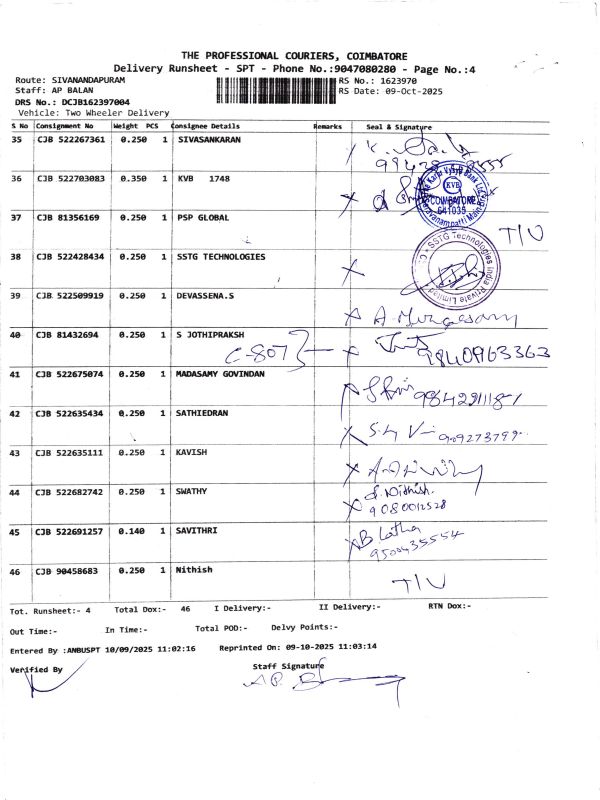 THE PROFESSIONAL COURIERS, COIMBATORE
Delivery Runsheet - SPT - Phone No.:9047080280 - Page No.:4
Route: SIVANANDAPURAM
RS No.: 1623970
Staff: AP BALAN
RS Date: 09-Oct-2025
DRS No.: DCJB162397004
Vehicle: Two Wheeler Delivery
S No Consignment No Weight PCS Consignee Details Remarks Seal & Signature
35 CJB 522267361 0.250 1 SIVASANKARAN
36 CJB 522703083 0.350 1 KVB 1748
KVB
COIMBATORE
641035
37 CJB 81356169 0.250 1 PSP GLOBAL
T/U
38 CJB 522428434 0.250 1 SSTG TECHNOLOGIES
SSTG Technologies India Private Limited
39 CJB 522509919 0.250 1 DEVASSENA.S
A. Murugasamy
40 CJB 81432694 0.250 1 S JOTHIPRAKSH
C-807
9840963363
41 CJB 522675074 0.250 1 MADASAMY GOVINDAN
42 CJB 522635434 0.250 1 SATHIEDRAN
43 CJB 522635111 0.250 1 KAVISH
44 CJB 522682742 0.250 1 SWATHY
d. Nithish.
9080012528
45 CJB 522691257 0.140 1 SAVITHRI
B. Latha
9500435554
46 CJB 90458683 0.250 1 Nithish
T/U
Tot. Runsheet:- 4 Total Dox:- 46 I Delivery:- II Delivery:- RTN Dox:-
Out Time:- In Time:- Total POD:- Delvy Points:-
Entered By :ANBUSPT 10/09/2025 11:02:16 Reprinted On: 09-10-2025 11:03:14
Verified By
Staff Signature